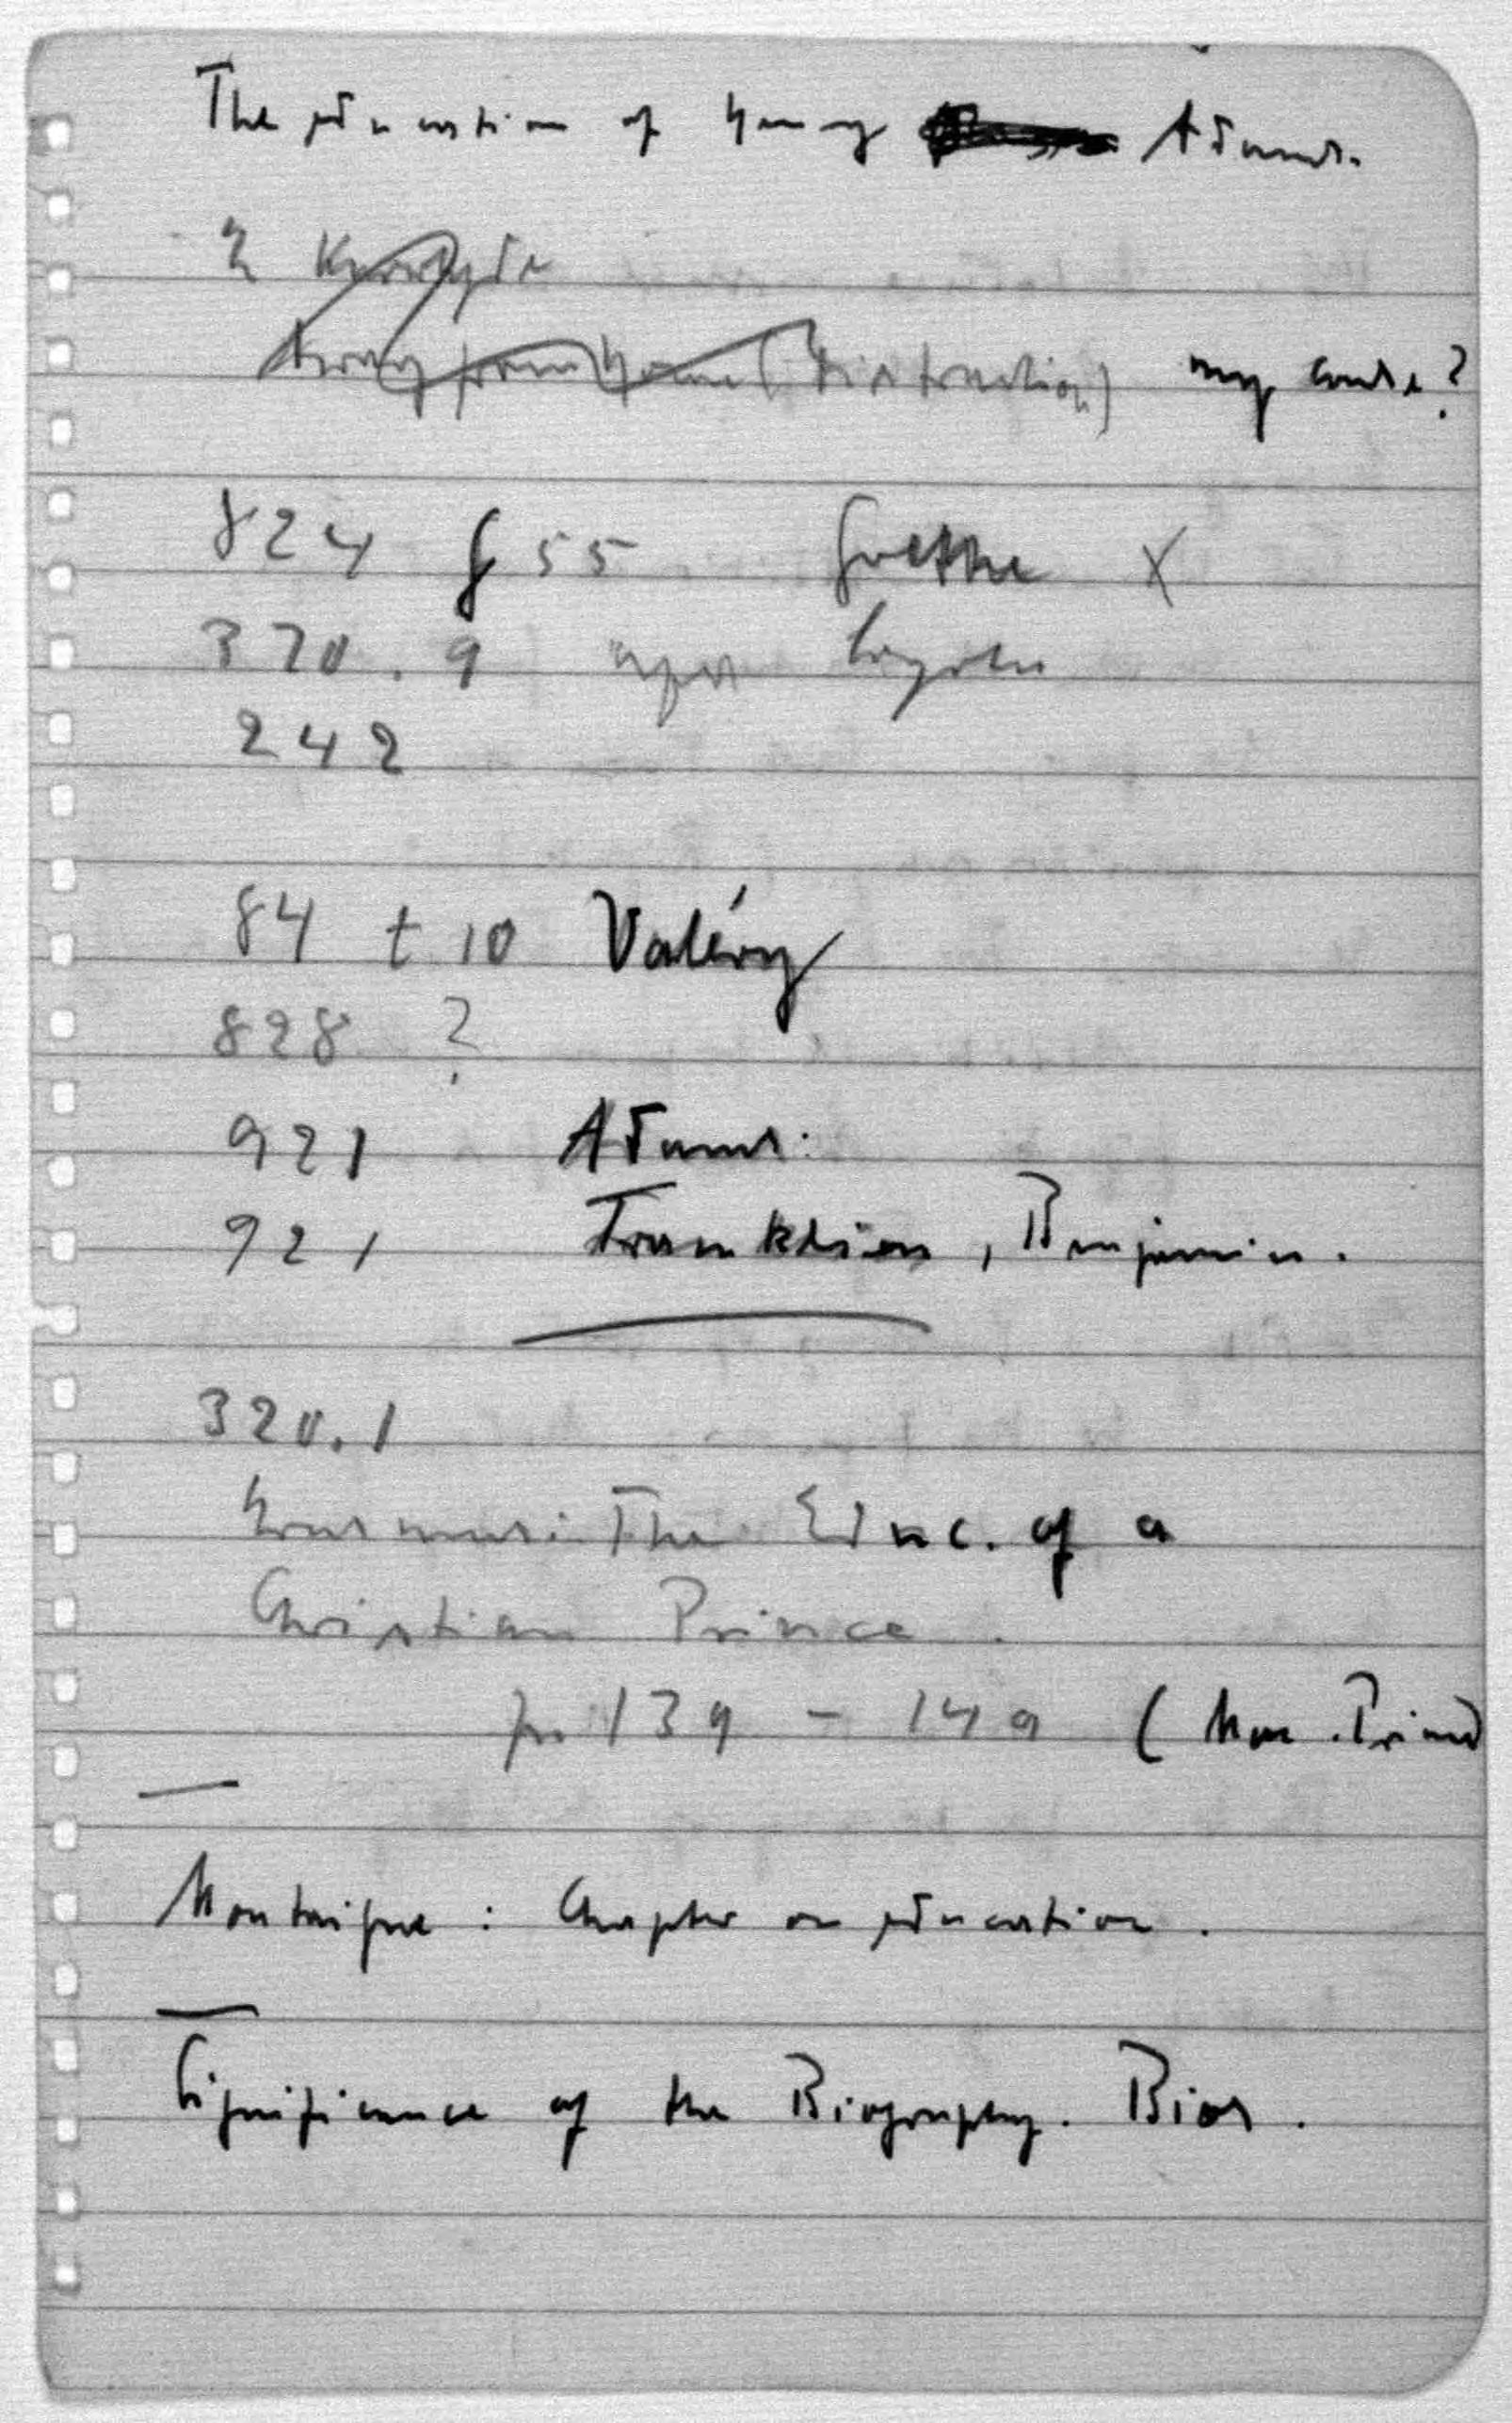 The education of young Adams.
2
Away from home (Distraction) my course?
824 g 55 Goethe X
370.9 Loyola
242
84 t 10 Valéry
828 ?
921 Adams.
921 Franklin, Benjamin.
320.1
Erasmus: The Educ. of a
Christian Prince.
p. 139 - 149 (
Montaigne: Chapter on education.
Significance of the Biography. Bios.